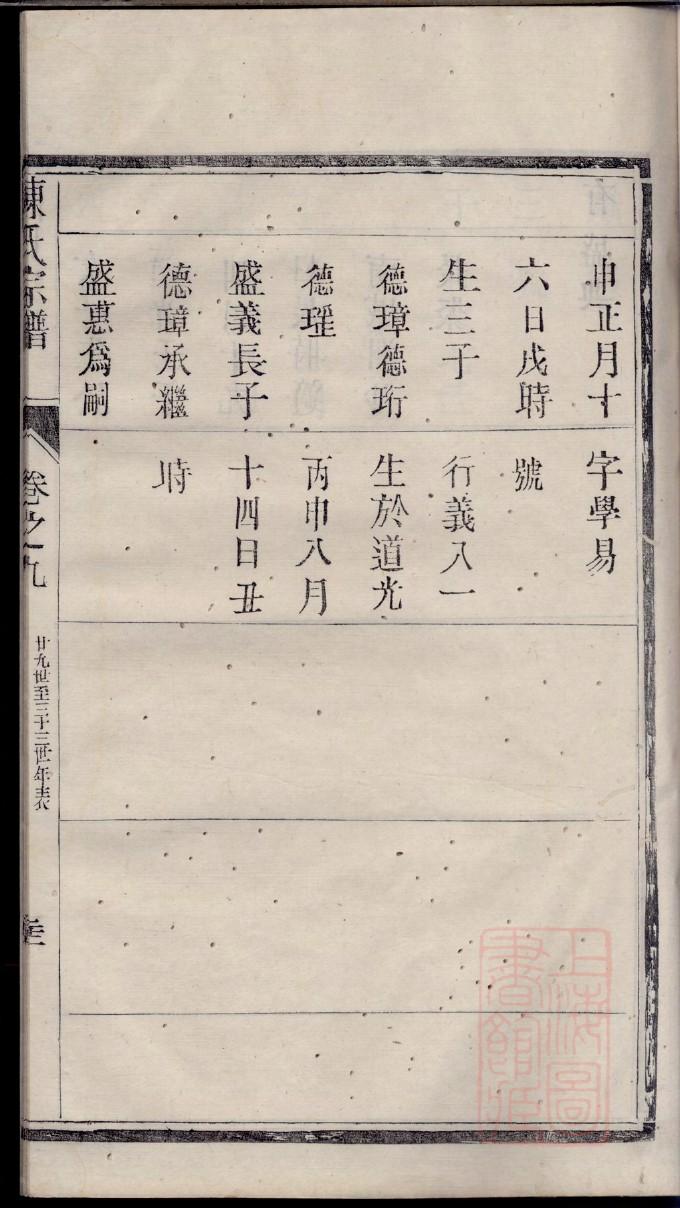 申正月十
六日戌時
生三子
德璋德珩
德瑆
盛義長子
德璋承繼
盛惠為嗣
字學易
號
行義八一
生於道光
丙申八月
十四日丑
時
陳氏宗譜
卷之九
廿九世至三十三世年表
上海圖書館藏